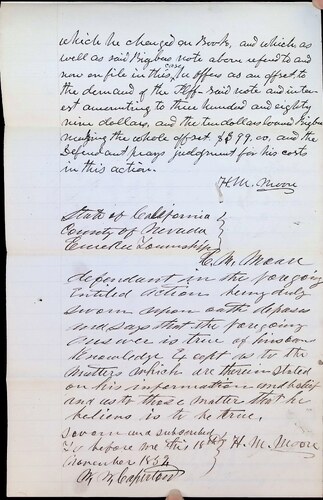 which he charged on Book, and which as
well as said Bigbees note above refered to and
now on file in this case he offers as an offset to
the demand of the Plff. said note and inter
est amounting to three hundred and eighty
nine dollars, and the ten dollars loaned Bigbee
making the whole offset $399.00, and the
Defendant prays judgment for his costs
in this action.
H. M. Moore
State of California
County of Nevada
Eureka Township
H. M. Moore
defendant in the foregoing
Entitled action being duly
sworn upon oath deposes
and says that the foregoing
answer is true of his own
Knowledge Except as to the
matters which are therein stated
on his information and belief
and as to those matters that he
believes is to be true.
Sworn and subscribed
To before me this 18th H. M. Moore
November 1852